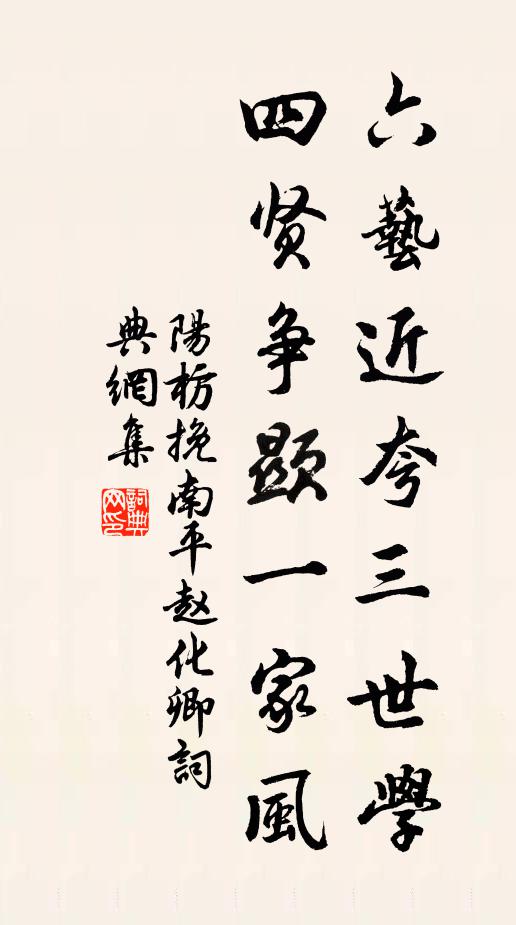 六藝近夸三世學
四贤争顯一家風
陽枋挽南平赵化卿詞
典網集
詞典网印